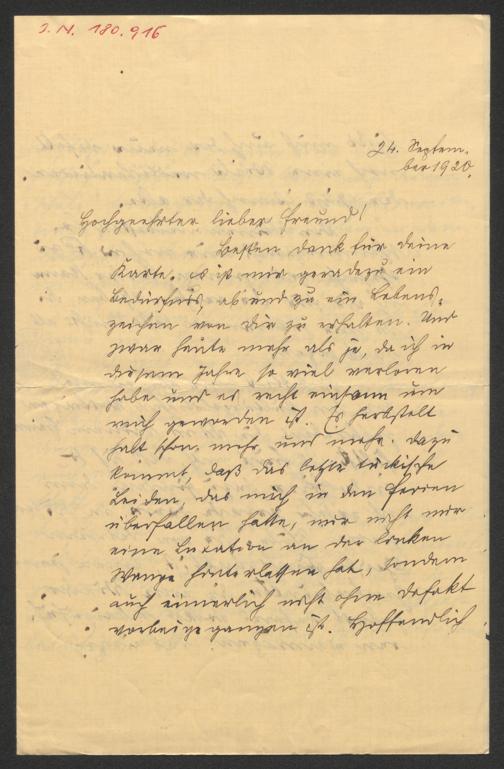 I. N. 180.916
24. Septem-
ber 1920.
Hochgeehrter lieber Freund!
Besten Dank für Deine
Karte. Es ist mir geradezu ein
Bedürfnis, ab und zu ein Lebens-
zeichen von Dir zu erhalten. Und
zwar heute mehr als je, da ich in
diesem Jahre so viel verloren
habe und es recht einsam um
mich geworden ist. Es herbstelt
halt schon mehr und mehr. Dazu
kommt, daß das letzte tückische
Leiden, das mich in den Ferien
überfallen hatte, mir nicht nur
eine an der linken
Wange hinterlassen hat, sondern
auch innerlich nicht ohne Defekt
vorbeigegangen ist. Hoffendlich